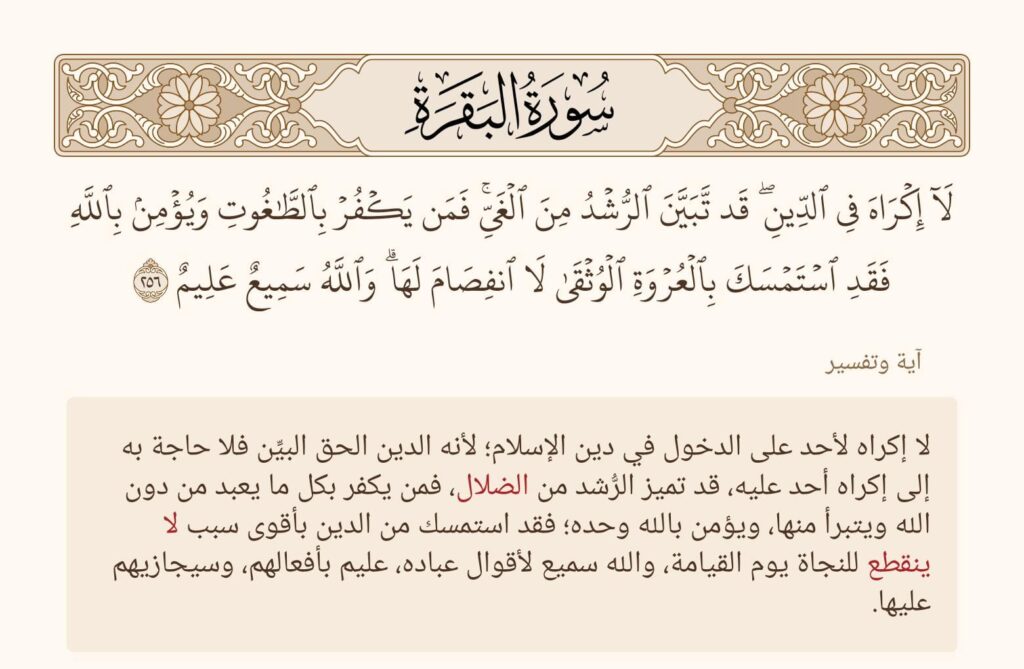 سُورَةُ البَقَرَةِ
لَآ إِكۡرَاهَ فِي ٱلدِّينِۖ قَد تَّبَيَّنَ ٱلرُّشۡدُ مِنَ ٱلۡغَيِّۚ فَمَن يَكۡفُرۡ بِٱلطَّٰغُوتِ وَيُؤۡمِنۢ بِٱللَّهِ
فَقَدِ ٱسۡتَمۡسَكَ بِٱلۡعُرۡوَةِ ٱلۡوُثۡقَىٰ لَا ٱنفِصَامَ لَهَاۗ وَٱللَّهُ سَمِيعٌ عَلِيمٌ ٢٥٦
آية وتفسير
لا إكراه لأحد على الدخول في دين الإسلام؛ لأنه الدين الحق البيِّن فلا حاجة به
إلى إكراه أحد عليه، قد تميز الرُّشد من الضلال، فمن يكفر بكل ما يعبد من دون
الله ويتبرأ منها، ويؤمن بالله وحده؛ فقد استمسك من الدين بأقوى سبب لا
ينقطع للنجاة يوم القيامة، والله سميع لأقوال عباده، عليم بأفعالهم، وسيجازيهم
عليها.